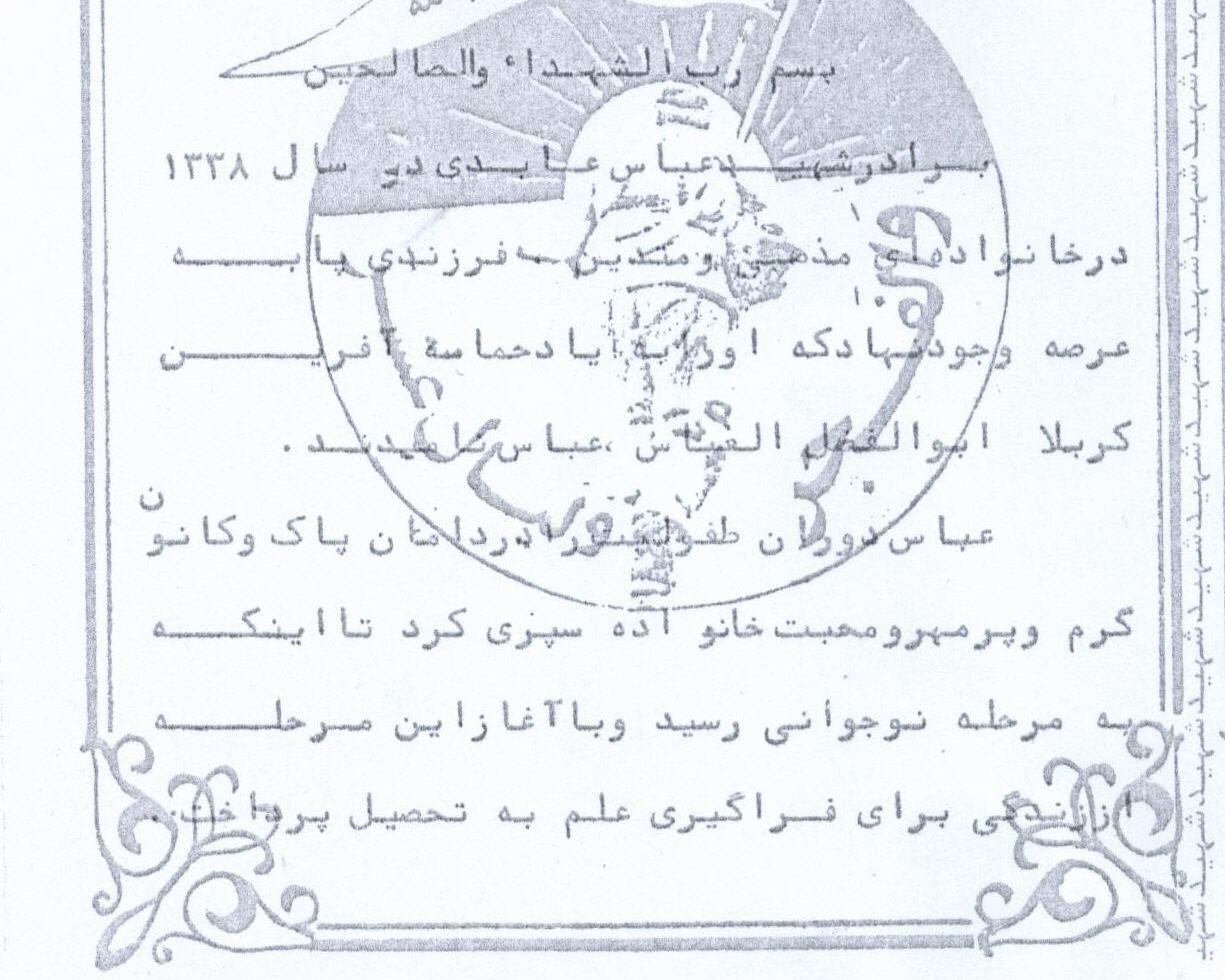 بسم رب الشهداء والصالحین
برادر شهید عباس عابدی در سال ۱۳۳۸
در خانواده‌ای مذهبی و متدین فرزندی پا به
عرصه وجود نهاد که او را به یاد حماسه آفرین
کربلا ابوالفضل العباس ، عباس نامیدند .
عباس دوران طفولیت را در دامان پاک و کانون
گرم و پر مهر و محبت خانواده سپری کرد تا اینکه
به مرحله نوجوانی رسید و با آغاز این مرحله
از زندگی برای فراگیری علم به تحصیل پرداخت .
شهید شهید شهید شهید شهید شهید شهید